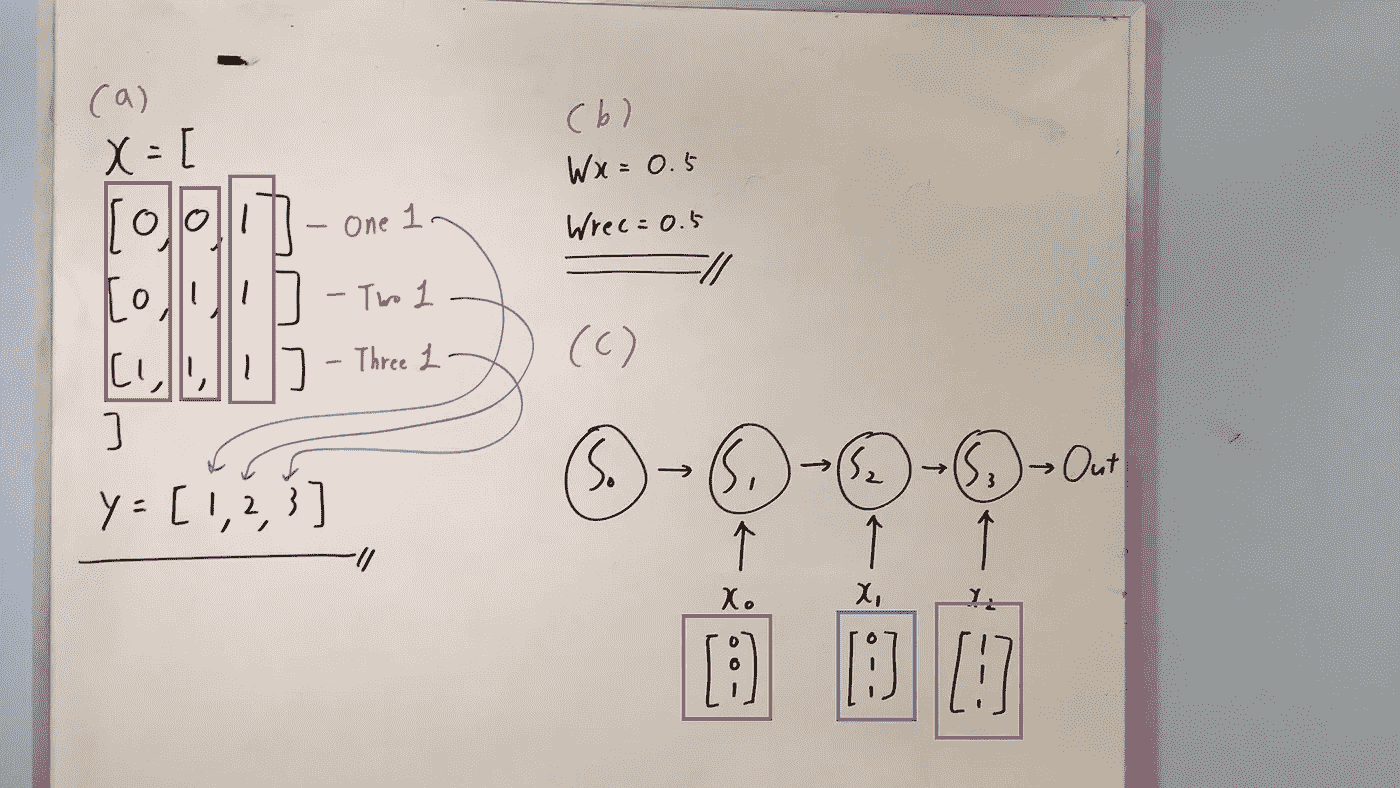 (a)
X = [
[0, 0, 1] - One 1
[0, 1, 1] - Two 1
[1, 1, 1] - Three 1
]
Y = [1, 2, 3]
(b)
Wx = 0.5
Wrec = 0.5
(c)
S0 → S1 → S2 → S3 → Out
X0 X1 X2
[0 [0 [1
0 1 1
1] 1] 1]